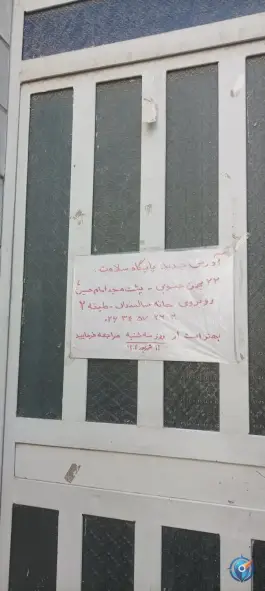 آدرس جدید پایگاه سلامت :
۲۲ بهمن جنوبی - پشت مسجد امام حسین
روبروی خانه سالمندان - طبقه ۲
بهتر است از روز سه شنبه مراجعه فرمایید